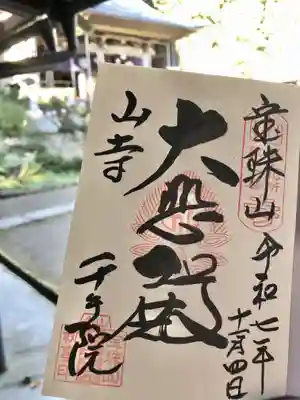 宝珠山
令和七年
十一月四日
大悲殿
山寺
千手院